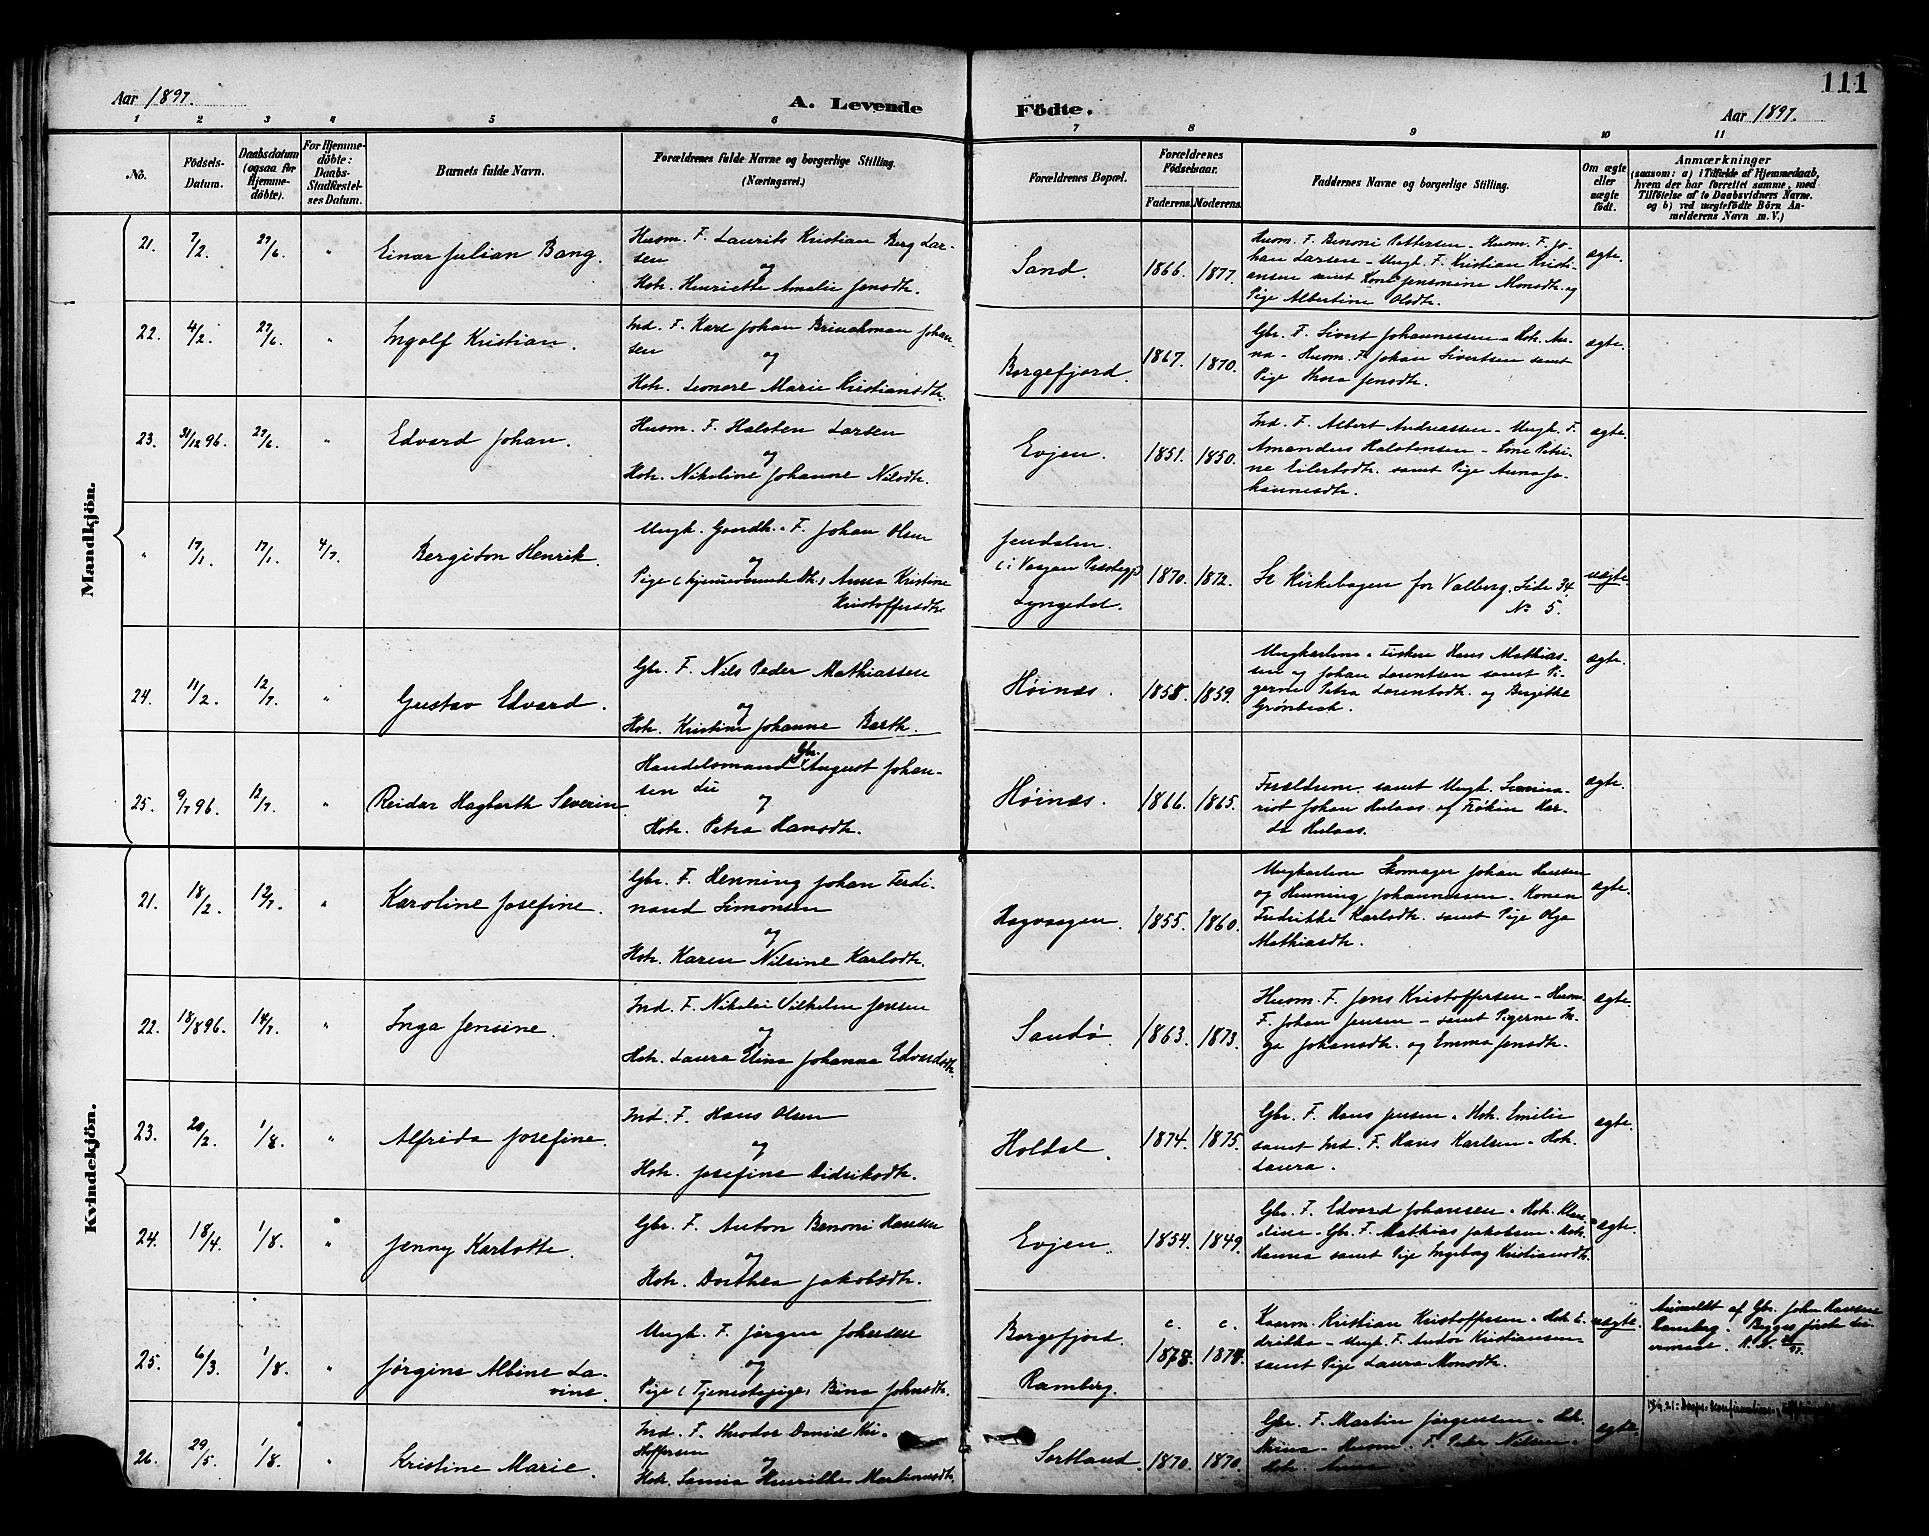 111
Aar 1897.
A. Levende
Födte.
Aar 1897.
1 2 3 4 5 6 7 8 9 10 11
No.
Födsels-
Datum.
Daabsdatum
(ogsaa for
Hjemme-
döbte).
For Hjemme-
döbte:
Daabs-
Stadfæstel-
ses Datum.
Barnets fulde Navn.
Forældrenes fulde Navne og borgerlige Stilling.
(Næringsvei.)
Forældrenes Bopæl.
Forældrenes
Födselsaar.
Faderens.
Moderens.
Faddernes Navne og borgerlige Stilling.
Om ægte
eller
uægte
födt.
Anmærkninger
(saasom: a) i Tilfælde af Hjemmedaab,
hvem der har forrettet samme, med
Tilföielse af to Daabsvidners Navne.
og b) ved uægtefödte Börn An-
melderens Navn m. V.)
Mandkjön.
21. 7/2. 27/6. "
Einar Julian Bang.
Husm. F. Laurits Kristian Berg Lar-
sen
og
Hstr. Henriette Amalie Jensdtr.
Sand. 1866. 1877.
Husm. F. Benoni Pettersen - Husm. F. Jo-
han Larsen - Ungk. F. Kristian Kristi-
ansen samt Kone Jensmine Monsdtr. og
Pige Albertine Olsdtr.
ægte.
22. 4/2. 27/6. "
Ingolf Kristian.
Ind. F. Karl Johan Brinchman Johan
sen
og
Hstr. Leonore Marie Kristiansdtr.
Borgefjord. 1867. 1870.
Gbr. F. Sivert Johannessen - Hstr. An-
na - Husm. F. Johan Sivertsen samt
Pige Thora Jensdtr.
ægte.
23. 31/12 96. 27/6. "
Edvard Johan.
Husm. F. Halsten Larsen
og
Hstr. Nikoline Johanne Nilsdtr.
Evjen. 1851. 1850.
Ind. F. Albert Andreassen - Ungk. F.
Amandus Halstensen - Kone Petri-
ne Eilertsdtr. samt Pige Anna Jo-
hannesdtr.
ægte.
" 17/1. 17/1. 4/7.
Bergiton Henrik.
Ungk. Gaardb. - F. Johan Olsen
og
Pige (hjemmeværende Dtr.) Anna Kristine
Kristoffersdtr.
Jendalen.
(i Vaagan Præstegj.)
Lyngedal. 1870. 1872.
Se Kirkebogen for Valberg. Side 34
No 5.
uægte.
24. 11/2. 12/7. "
Gustav Edvard.
Gbr. F. Nils Peder Mathiassen
og
Hstr. Kristine Johanne Barth.
Höinæs. 1858. 1859.
Ungkarlene - Fiskere Hans Mathias-
sen og Johan Lorentsen samt Pi-
gerne Petra Lorentsdtr. og Bergitte
Grönbech.
ægte.
25. 9/7 96. 12/7. "
Reidar Hagbarth Severin
Handelsmand Gbr. August Johan-
sen Lie
og
Hstr. Petra Hansdtr.
Höinæs. 1866. 1865.
Forældrene samt Ungk. Semina-
rist Johan Hulaas og Fröken Har-
da Hulaas.
ægte.
Kvindekjön.
21. 18/2. 12/7. "
Karoline Josefine.
Gbr. F. Henning Johan Ferdi-
nand Simonsen
og
Hstr. Karen Nilsine Karlsdtr.
Hagvaagen. 1855. 1860.
Ungkarlene Skomager Johan Hansen
og Henning Johannessen - Konen
Fredrikke Karlsdtr. samt Pige Olga
Mathiasdtr.
ægte.
22. 18/8 96. 14/7. "
Inga Jensine.
Ind. F. Nikolai Vilhelm Jensen
og
Hstr. Laura Elina Johanna Edvardsdtr.
Sandö. 1863. 1873.
Husm. F. Jens Kristoffersen - Husm.
F. Johan Jensen - samt Pigerne In-
ga Johansdtr. og Emma Jensdtr.
ægte.
23. 20/2. 1/8. "
Alfrida Josefine.
Ind. F. Hans Olsen
og
Hstr. Josefine Didriksdtr.
Holdal. 1874. 1875.
Gbr. F. Hans Jensen - Hstr. Emilie
samt Ind. F. Hans Karlsen - Hstr.
Laura.
ægte.
24. 18/4. 1/8. "
Jenny Karlotte.
Gbr. F. Anton Benoni Hansen
og
Hstr. Dorthea Jakobsdtr.
Evjen. 1854. 1849.
Gbr. F. Edvard Johansen - Hstr. Klau-
dine - Gbr. F. Mathias Jakobsen - Hstr.
Hanna samt Pige Ingeborg Kristiansdtr.
ægte.
25. 6/3. 1/8. "
Jörgine Albine La-
vine.
Ungk. F. Jörgen Johnsen
og
Pige (Tjenestepige) Bina Johnsdtr.
Borgefjord
Ramberg.
c. 1878. c. 1874.
Kaarm. Kristian Kristoffersen - Hstr. E-
drikka - Ungk. F. Andor Kristiansen
samt Pige Laura Monsdtr.
uægte.
Anmeldt af Gbr. John Hansen
Ramberg. Begges förste Lei-
ermaal.
26. 29/5. 1/8. "
Kristine Marie.
Ind. F. Theodor Daniel Kri-
stoffersen
og
Hstr. Sanna Henrikke Martinusdtr.
Sortland. 1870. 1870.
Gbr. F. Martin Jörgensen - Hstr.
Mina - Husm. F. Peder Nilsen -
Hstr. Anna
ægte.